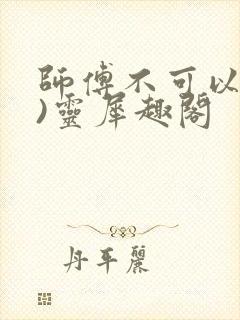 師傅不可以
)靈犀趣閣
丹平麗